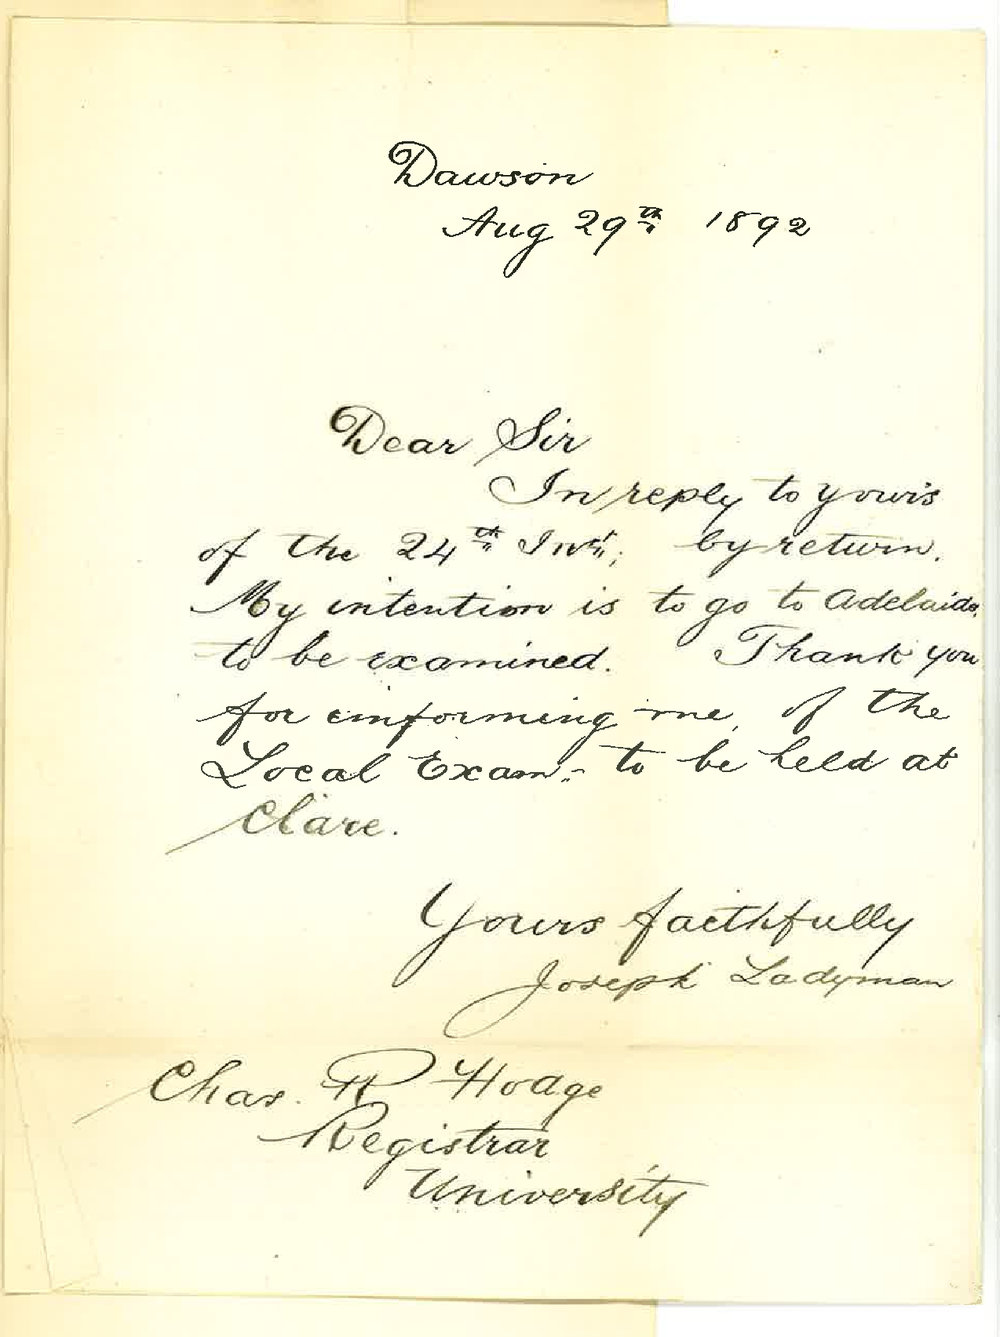 Dawson
Aug 29th 1892
Dear Sir
In reply to yours
of the 24th Inst; by return.
My intention is to go to Adelaide
to be examined. Thank you
for imforming me, of the
Local Exam:- to be held at
Clare.
Yours faithfully
Joseph Ladyman
Chas. R Hodge
Registrar
University